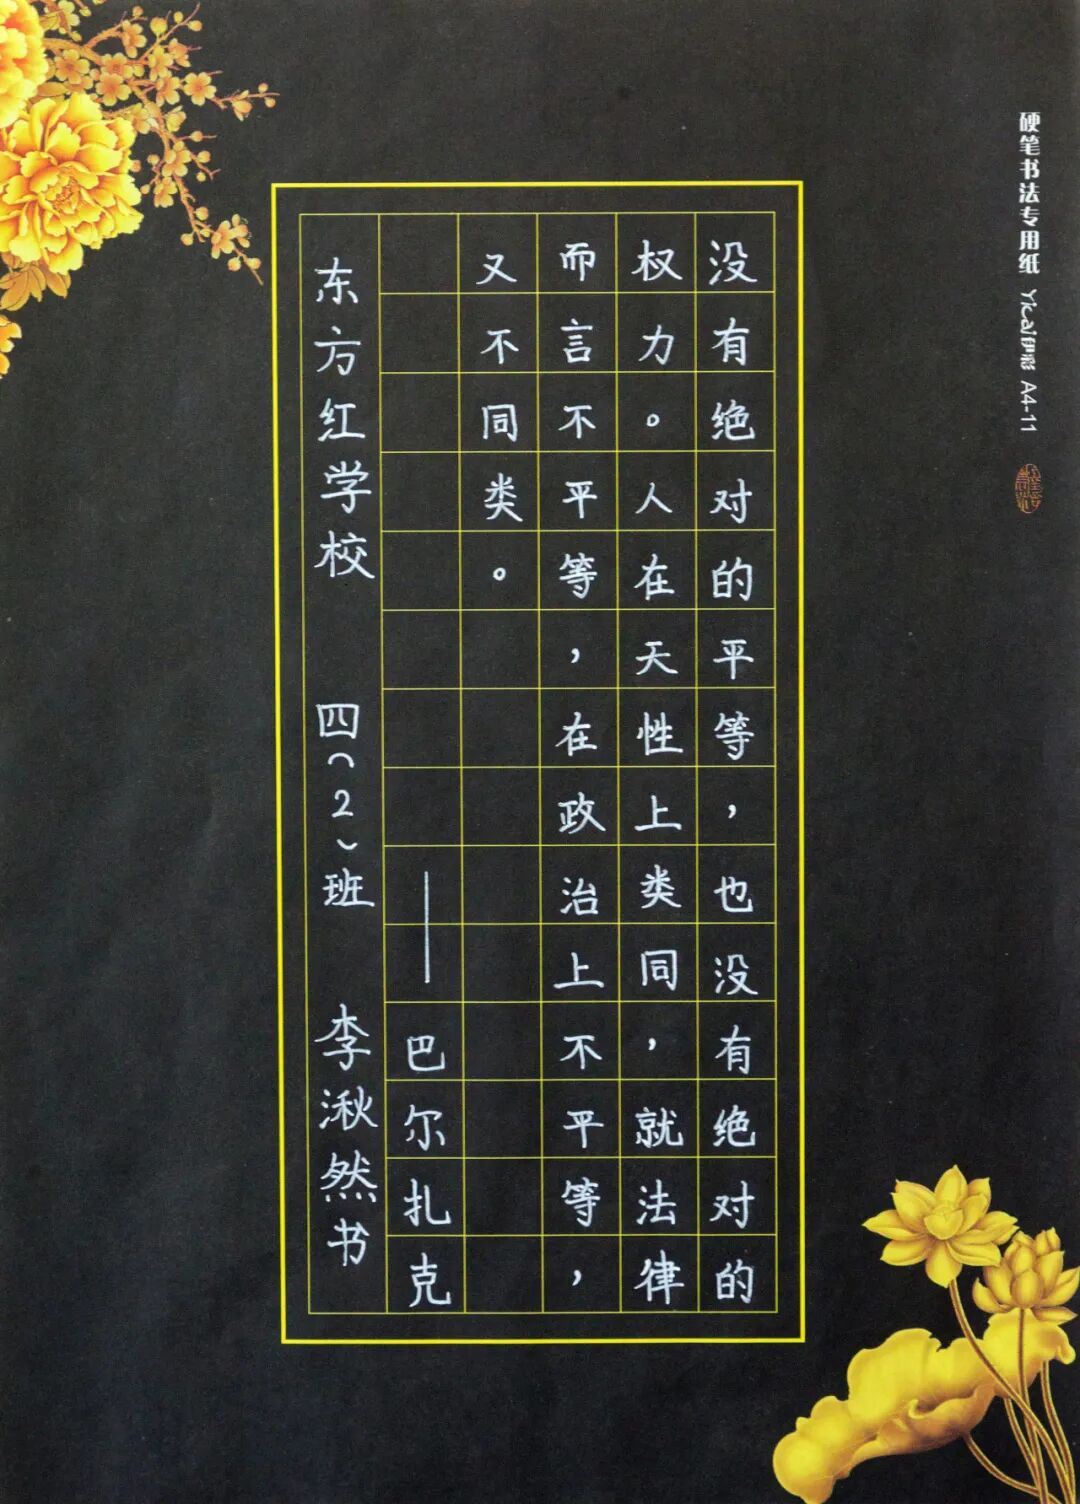 没有绝对的平等，也没有绝对的
权力。人在天性上类同，就法律
而言不平等，在政治上不平等，
又不同类。
——巴尔扎克
东方红学校 四（2）班 李湫然书
硬笔书法专用纸 Yicai伊彩 A4-11